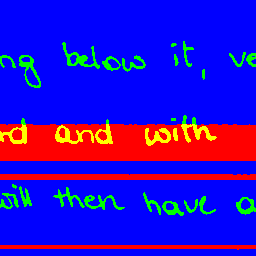 below it,
and with
will then have a